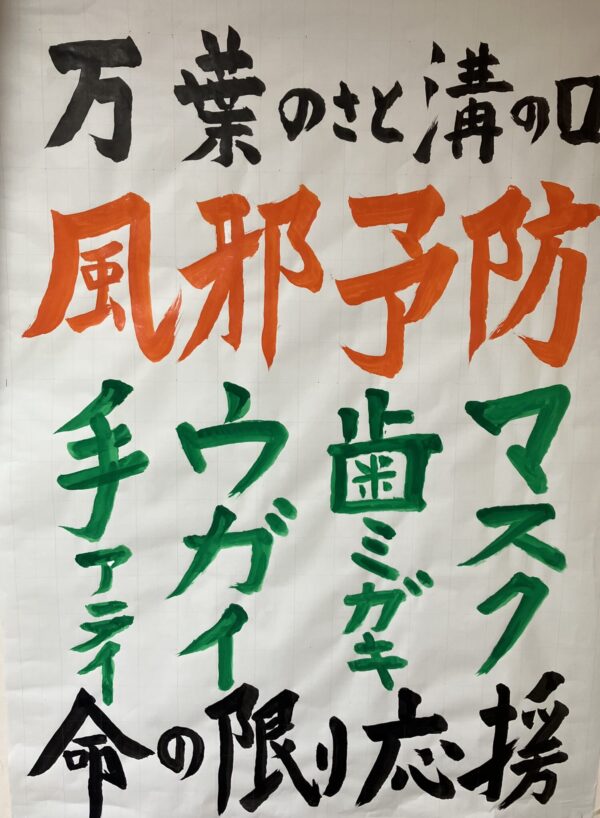 万葉のさと溝の口
風邪予防
マスク
歯ミガキ
ウガイ
手アライ
命の限り応援